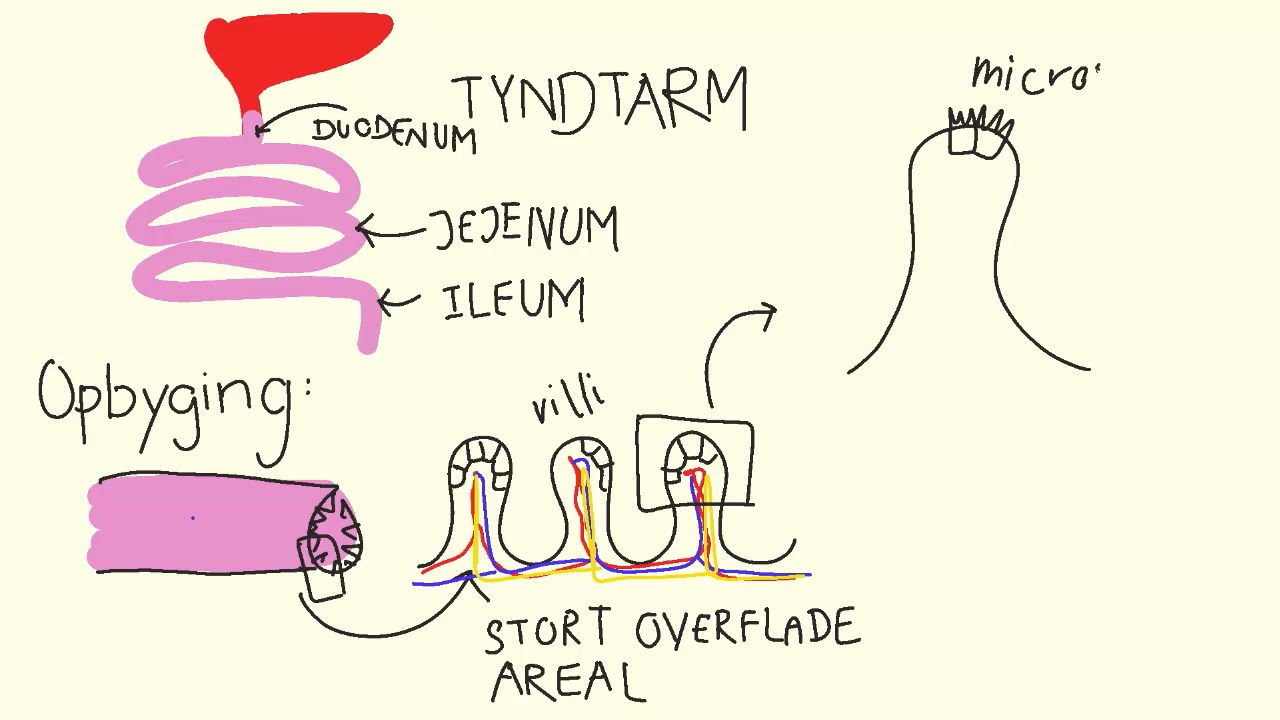 micro
TYNDTARM
DUODENUM
JEJENUM
ILEUM
Opbyging:
villi
STORT OVERFLADE
AREAL